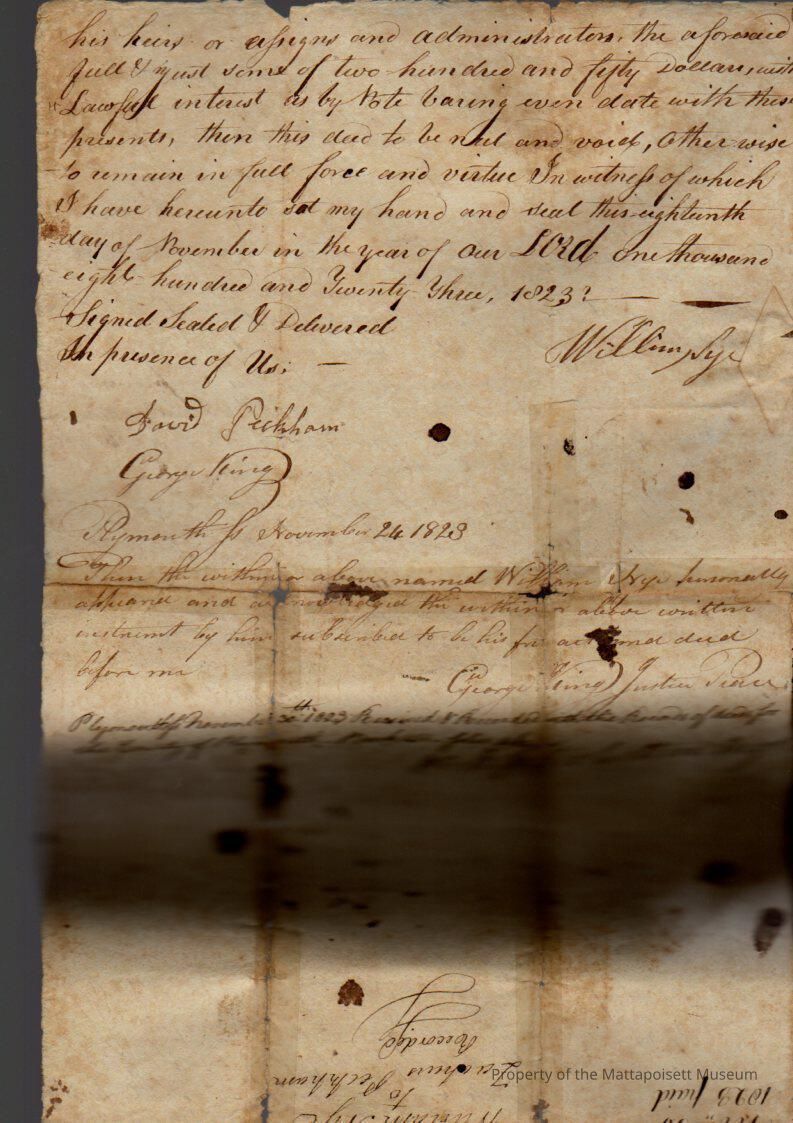 his heirs or assigns and administrators, the aforesaid
full & just some of two hundred and fifty Dollars, with
Lawfull interest as by Note baring even date with these
presents, then this deed to be null and void, Otherwise
to remain in full force and virtue In witness of which
I have hereunto set my hand and seal this eighteenth
day of November in the year of our LORd one thousand
eight hundred and Twenty Three, 1823
Signed Sealed & Delivered
In presence of Us;
William Nye
David Peckham
Geo George King
Plymouth Ss November 24 1823
Then the within or above named William Nye personally
appeared and acknowledged the within or above written
instrument by him subscribed to be his free act and deed
before me
George King Justice Peace
Plymouth Ss November 1823 Received & Recorded the Records of
William Nye
to
Peckham
Recorded
1823 paid
Property of the Mattapoisett Museum